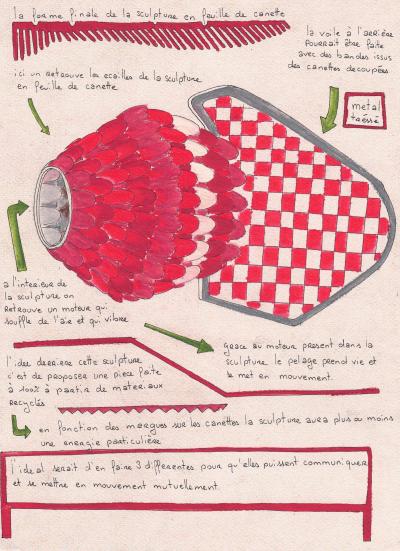 la forme finale de la sculpture en feuille de canette
la voile à l'arrière
pourrait être faite
avec des bandes issus
des canettes decoupées
ici un retrouve les ecailles de la sculpture
en feuille de canette
metal
tréssé
a l'interieur de
la sculpture on
retrouve un moteur qui
souffle de l'air et qui vibre
grace au moteur present dans la
sculpture le pelage prend vie et
se met en mouvement.
l'idée derriere cette sculpture
c'est de proposer une piece faite
à 100% à partir de materiaux
recyclés
en fonction des marques sur les canettes la sculpture aura plus ou moins
une energie particulière
l'ideal serait d'en faire 3 differentes pour qu'elles puissent communiquer
et se mettre en mouvement mutuellement.